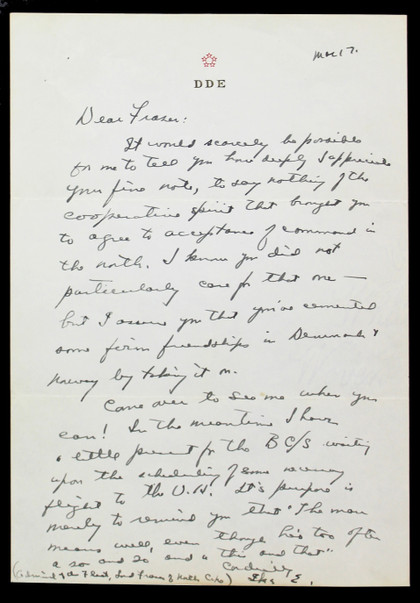 Mar 17.
DDE
Dear Fraser:
It would scarcely be possible
for me to tell you how deeply I appreciate
your fine note, to say nothing of the
cooperative spirit that brought you
to agree to acceptance of command in
the north. I know you did not
particularly care for that one —
but I assure you that you've cemented
some firm friendships in Denmark &
Norway by taking it on.
Come over to see me when you
can! In the meantime I have
a little present for the B C/S waiting
upon the scheduling of some
flight to the U.K. It's purpose is
merely to remind you that "The man
means well, even though he's too often
a so and so and a this and that"
Cordially
Ike E.
(Admiral of the Fleet, Lord Fraser of North Cape)